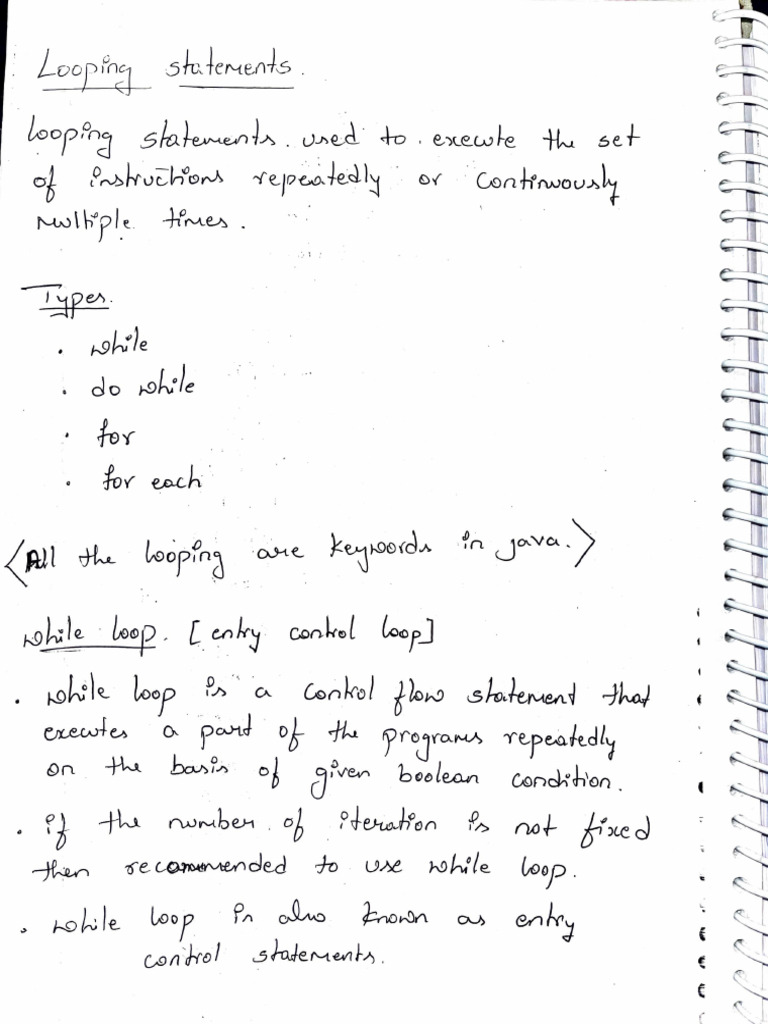 Looping statements.
Looping statements used to execute the set
of instructions repeatedly or continuously
multiple times.
Types.
• while
• do while
• for
• for each
<All the looping are keywords in java.>
while loop. [entry control loop]
• while loop is a control flow statement that
executes a part of the programs repeatedly
on the basis of given boolean condition.
• if the number of iteration is not fixed
then recommended to use while loop.
• while loop is also known as entry
control statements.